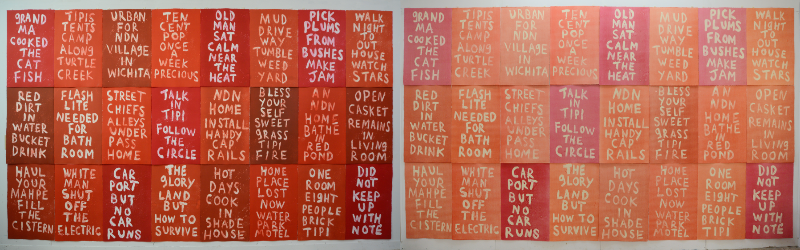 GRAND
MA
COOKED
THE
CAT
FISH
TIPIS
TENTS
CAMP
ALONG
TURTLE
CREEK
URBAN
FOR
NDN
VILLAGE
IN
WICHITA
TEN
CENT
POP
ONCE
A
WEEK
PRECIOUS
OLD
MAN
SAT
CALM
NEAR
THE
HEAT
MUD
DRIVE
WAY
TUMBLE
WEED
YARD
PICK
PLUMS
FROM
BUSHES
MAKE
JAM
WALK
NIGHT
TO
OUT
HOUSE
WATCH
STARS
RED
DIRT
IN
WATER
BUCKET
DRINK
FLASH
LITE
NEEDED
FOR
BATH
ROOM
STREET
CHIEFS
ALLEYS
UNDER
PASS
HOME
TALK
IN
TIPI
FOLLOW
THE
CIRCLE
NDN
HOME
INSTALL
HANDY
CAP
RAILS
BLESS
YOUR
SELF
SWEET
GRASS
TIPI
FIRE
AN
NDN
HOME
BATHE
IN
RED
POND
OPEN
CASKET
REMAINS
IN
LIVING
ROOM
HAUL
YOUR
MAHPE
FILL
THE
CISTERN
WHITE
MAN
SHUT
OFF
THE
ELECTRIC
CAR
PORT
BUT
NO
CAR
RUNS
THE
GLORY
LAND
BUT
HOW TO
SURVIVE
HOT
DAYS
COOK
IN
SHADE
HOUSE
HOME
PLACE
LOST
NOW
WATER
PARK
MOTEL
ONE
ROOM
EIGHT
PEOPLE
BRICK
TIPI
DID
NOT
KEEP
UP
WITH
NOTE
GRAND
MA
COOKED
THE
CAT
FISH
TIPIS
TENTS
CAMP
ALONG
TURTLE
CREEK
URBAN
FOR
NDN
VILLAGE
IN
WICHITA
TEN
CENT
POP
ONCE
A
WEEK
PRECIOUS
OLD
MAN
SAT
CALM
NEAR
THE
HEAT
MUD
DRIVE
WAY
TUMBLE
WEED
YARD
PICK
PLUMS
FROM
BUSHES
MAKE
JAM
WALK
NIGHT
TO
OUT
HOUSE
WATCH
STARS
RED
DIRT
IN
WATER
BUCKET
DRINK
FLASH
LITE
NEEDED
FOR
BATH
ROOM
STREET
CHIEFS
ALLEYS
UNDER
PASS
HOME
TALK
IN
TIPI
FOLLOW
THE
CIRCLE
NDN
HOME
INSTALL
HANDY
CAP
RAILS
BLESS
YOUR
SELF
SWEET
GRASS
TIPI
FIRE
AN
NDN
HOME
BATHE
IN
RED
POND
OPEN
CASKET
REMAINS
IN
LIVING
ROOM
HAUL
YOUR
MAHPE
FILL
THE
CISTERN
WHITE
MAN
SHUT
OFF
THE
ELECTRIC
CAR
PORT
BUT
NO
CAR
RUNS
THE
GLORY
LAND
BUT
HOW TO
SURVIVE
HOT
DAYS
COOK
IN
SHADE
HOUSE
HOME
PLACE
LOST
NOW
WATER
PARK
MOTEL
ONE
ROOM
EIGHT
PEOPLE
BRICK
TIPI
DID
NOT
KEEP
UP
WITH
NOTE